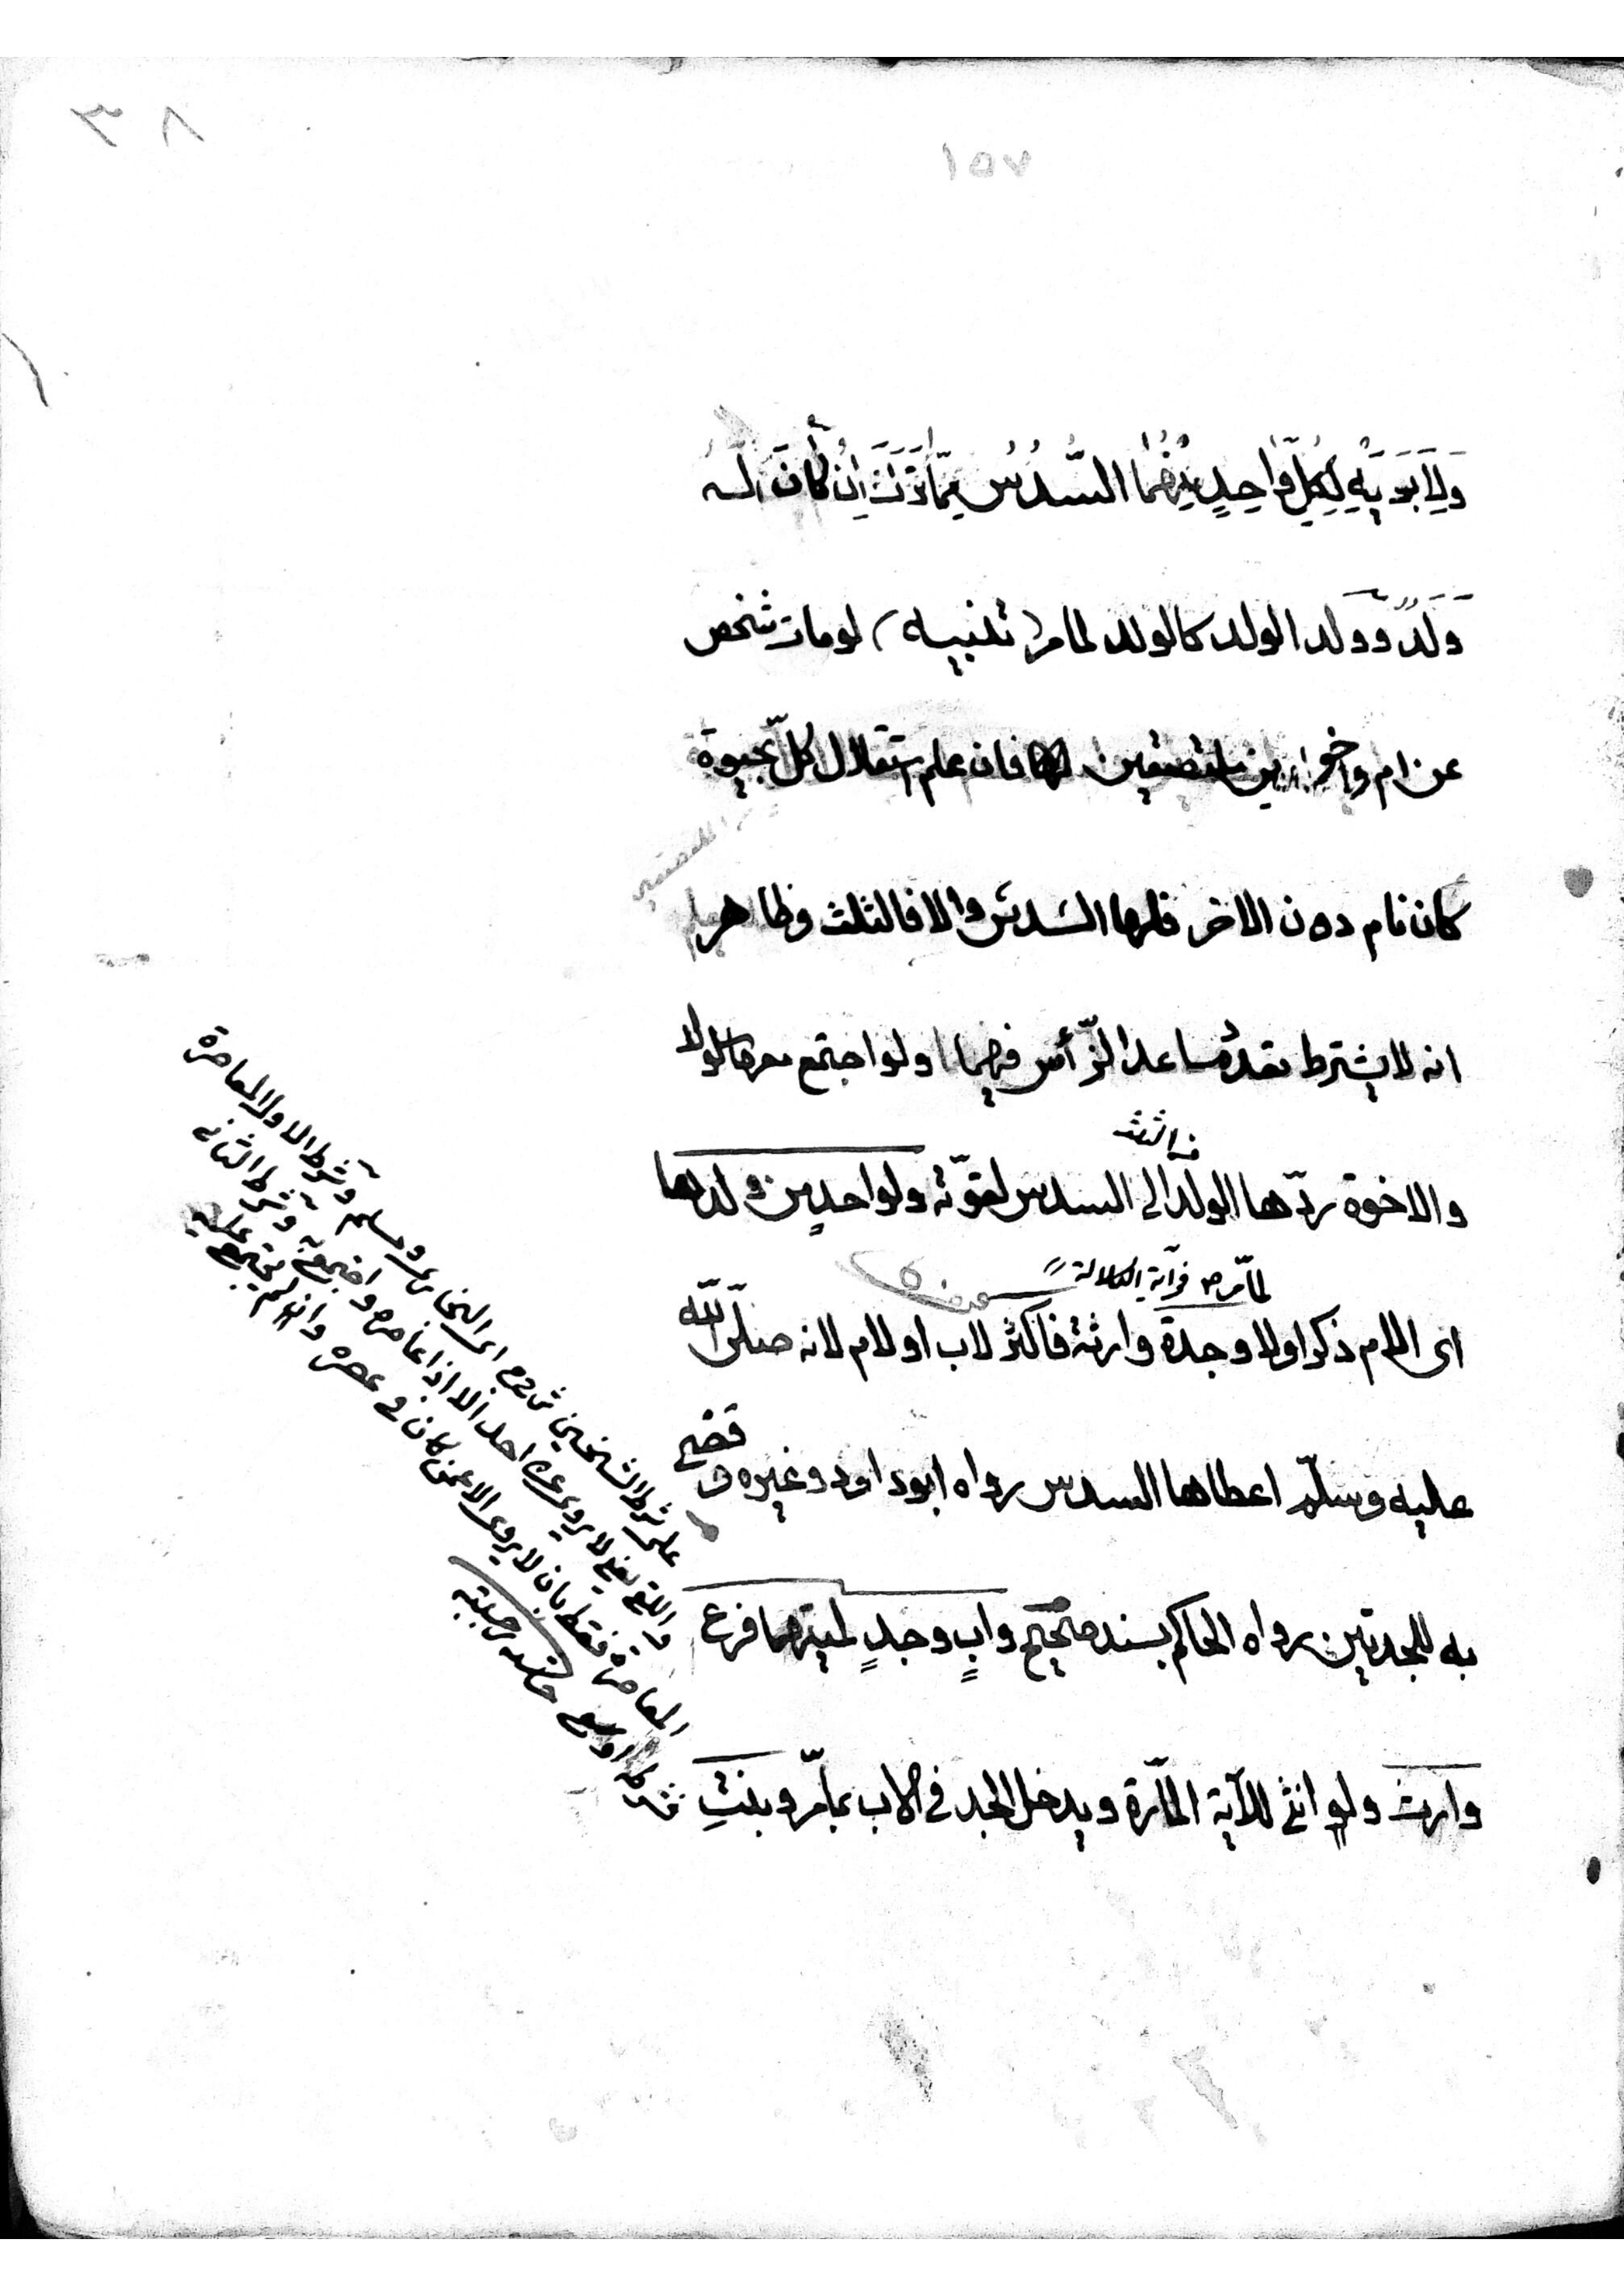 ٣٨
١٥٧
وَلِأَبَوَيْهِ لِكُلِّ وَاحِدٍ مِنْهُمَا السُّدُسُ مِمَّا تَرَكَ اِنْ كَانَ لَهُ
وَلَدٌ وولد الولد كالولد لما مر (تنبيه) لو مات شخص
عن ام واخوين ملتصقين فان علم استقلال كلّ بحيوة
كان نام دون الاخر فلها السدس والا فالثلث وظاهر
انه لا يشترط تعدّد ما عدا الرّأس فيهما ولو اجتمع معها الولد
من الثلث
والاخوة ردّها الولد الى السدس لقوّته ولواحدٍ من ولدها
لما مرّ فى آية الكلالة
اى الام ذكرا او لا وجدة وارثة فاكثر لاب او لام لانه صلى الله
عليه وسلّم اعطاها السدس رواه ابو داود وغيره وقضى
به للجدتين رواه الحاكم بسند صحيح وابٍ وجدٍ لميتهما فرع
وارث ولو انثى للآية المآرة ويدخل الجد فى الاب بمامّر وبنتِ
على شرط الشيخين اى البخارى ومسلم وشرط الاول المعاصرة
واللقى يعنى لا يروى عن احد الا اذا عاصره واجتمع وشرط الثانى
المعاصرة فقط بان لا يروى الا عمن كان فى عصره وان لم يجتمع